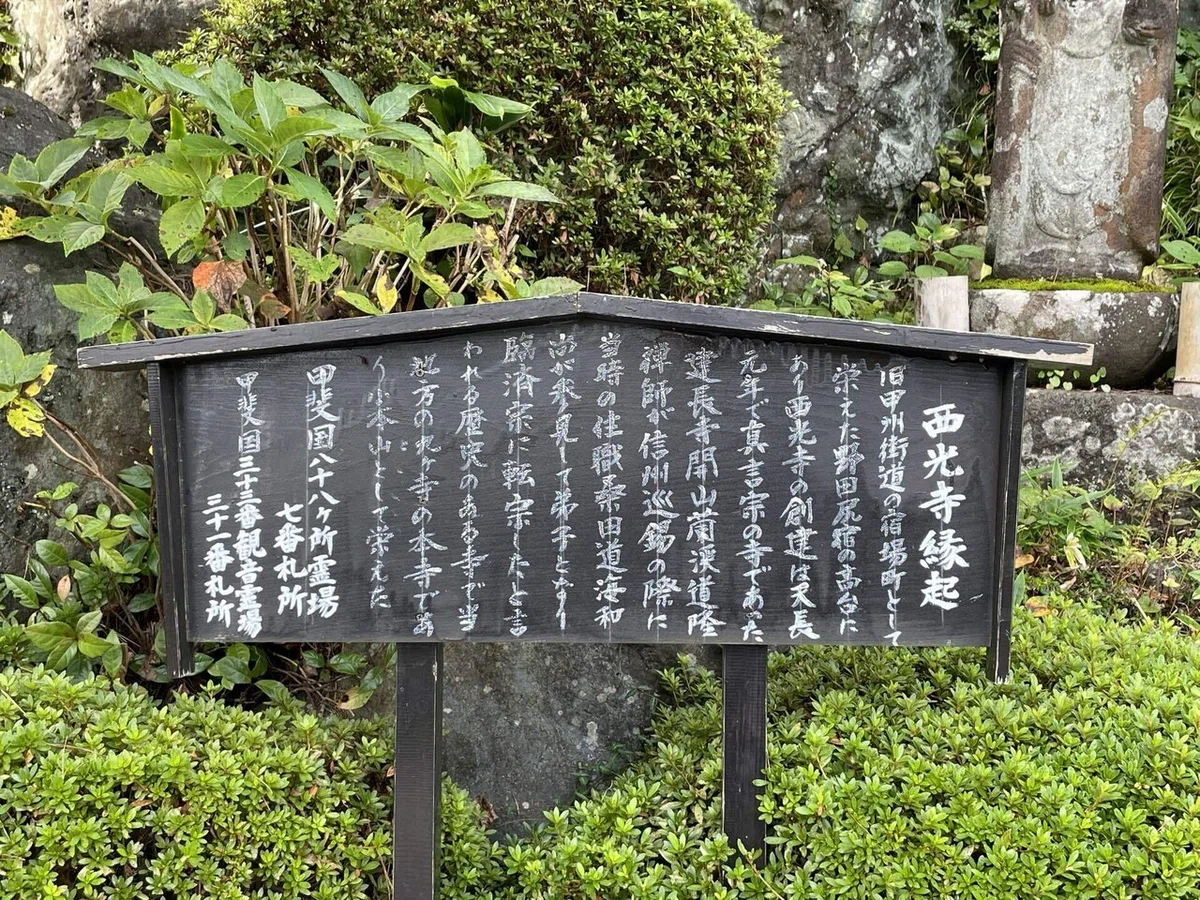 西光寺縁起
旧甲州街道の宿場町として
栄えた野田尻宿の高台に
あり西光寺の創建は天長
元年で真言宗の寺であった
建長寺開山蘭渓道隆
禅師が信州巡錫の際に
当時の住職桑田道海和
尚が参見して弟子となり
臨済宗に転宗したと言
われる歴史のある寺で当
地方の九ヶ寺の本寺であ
り小本山として栄えた
甲斐国八十八ヶ所霊場
七番札所
甲斐国三十三番観音霊場
三十一番札所